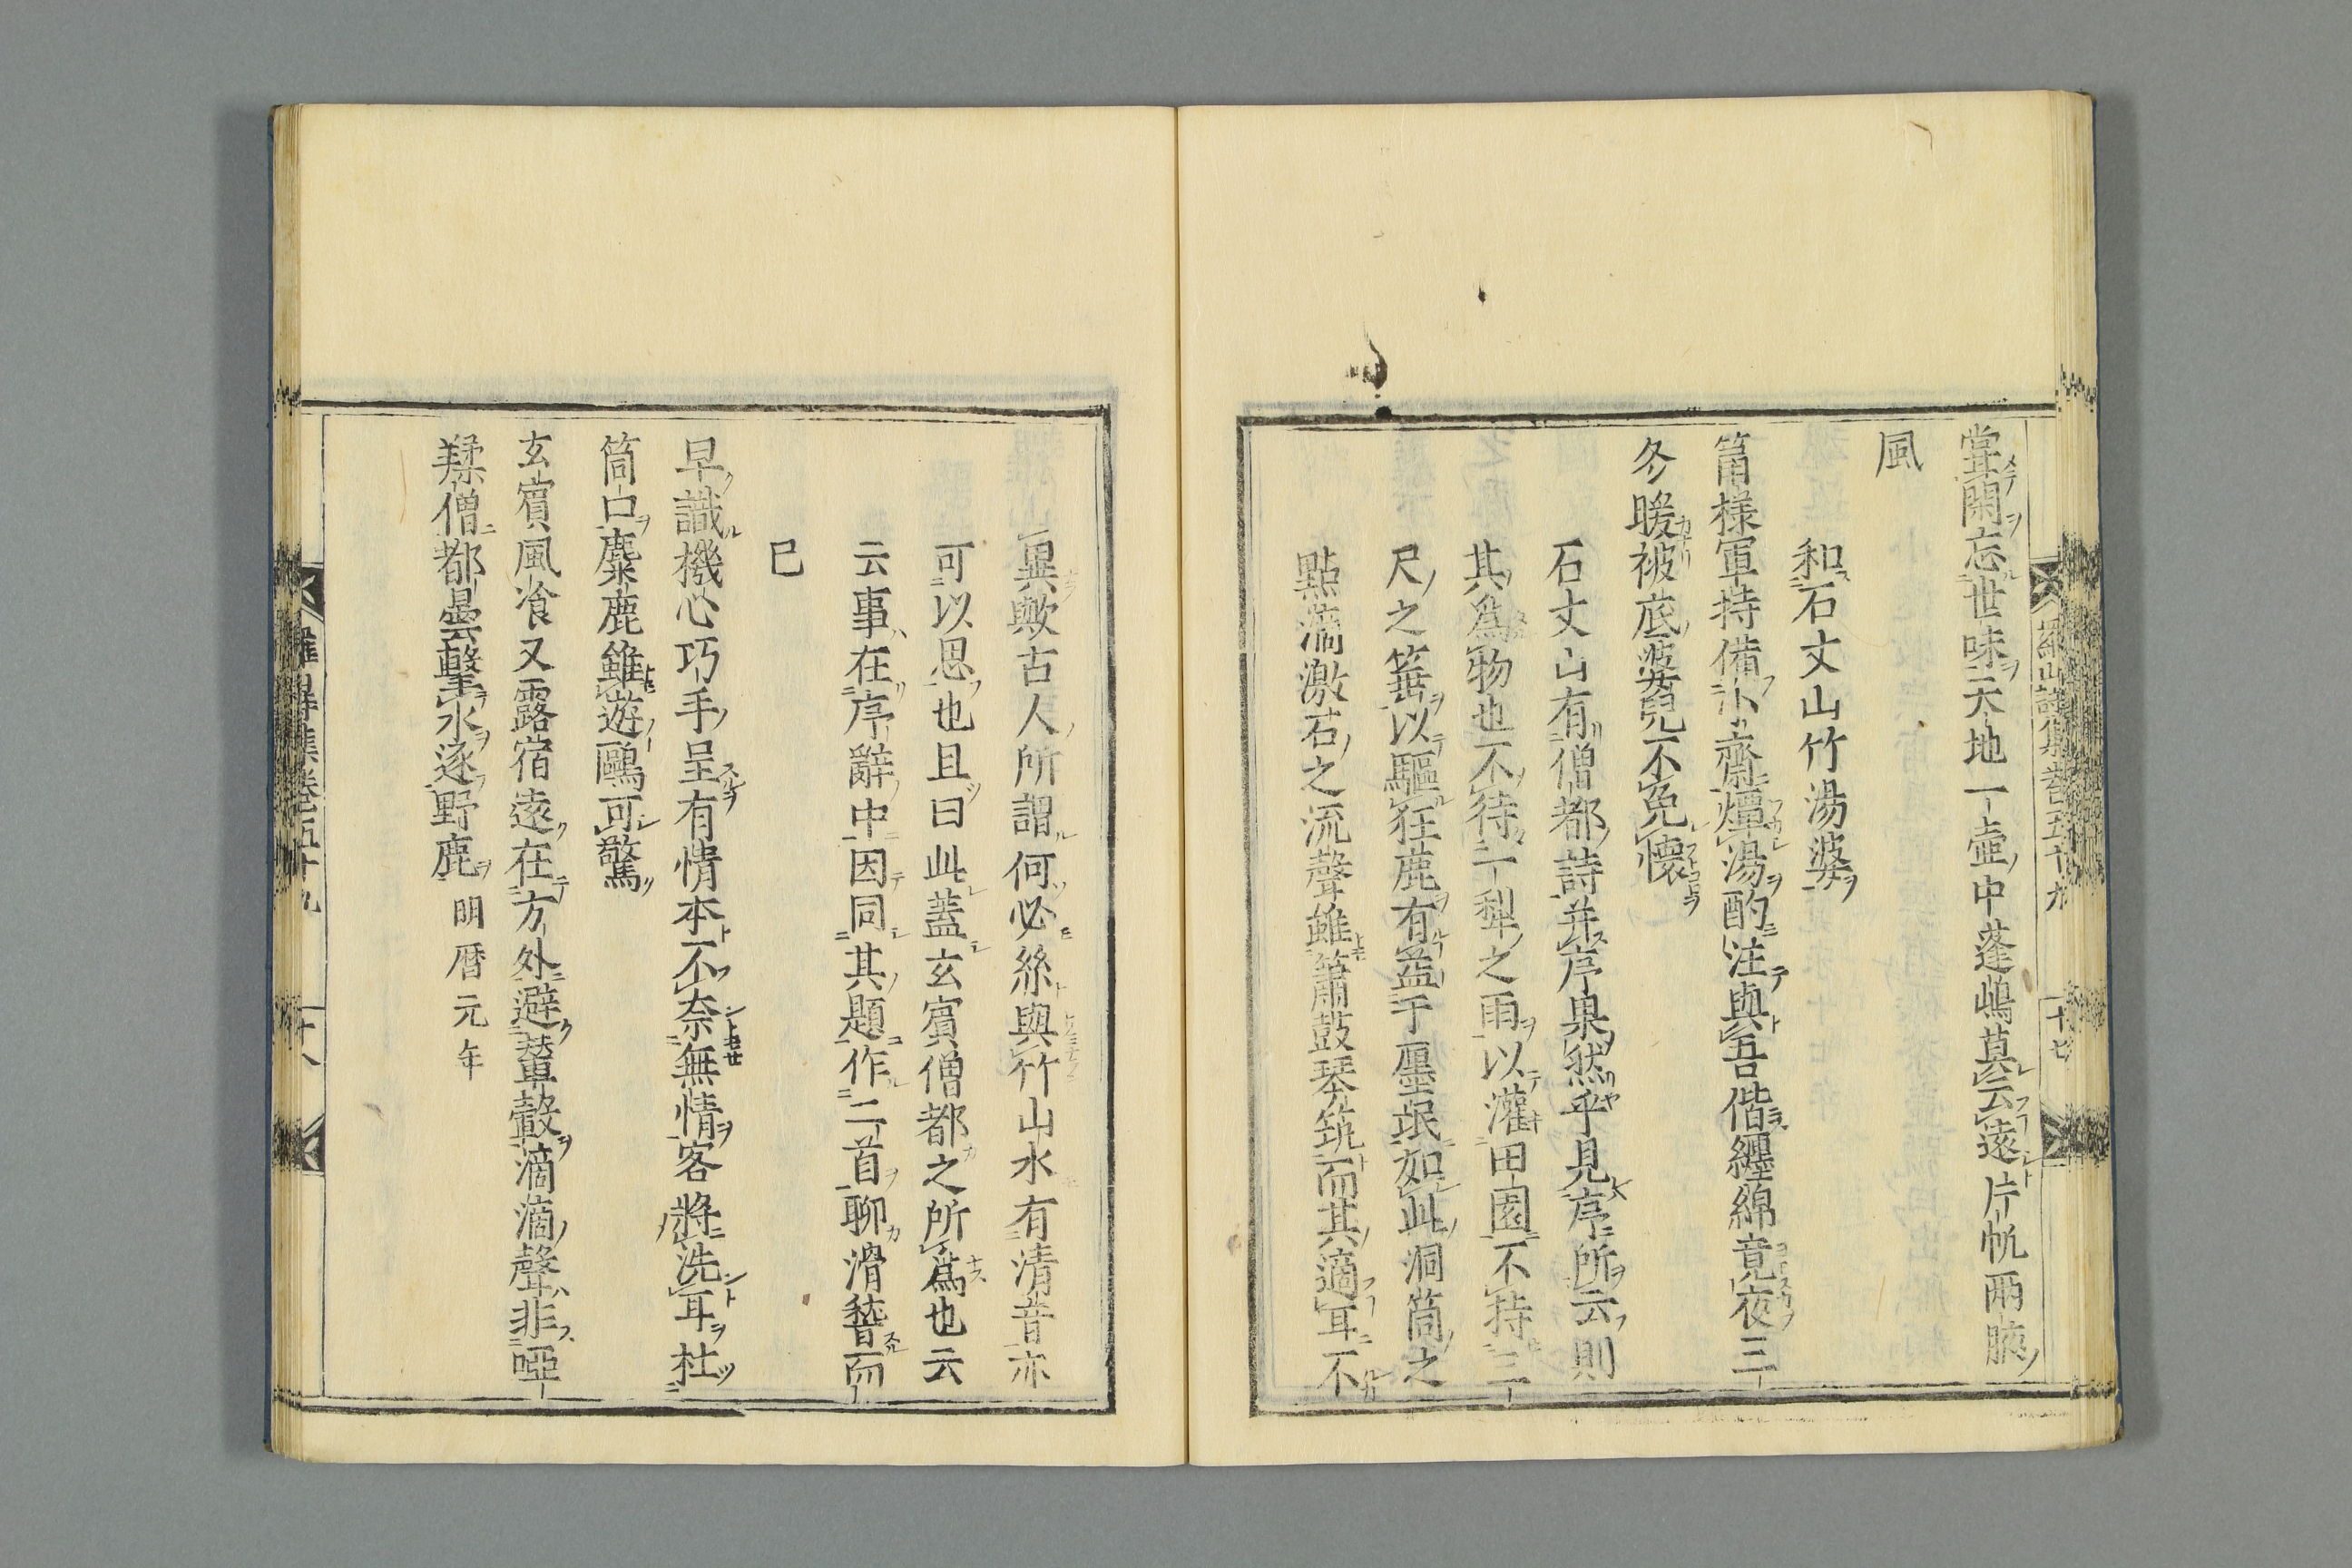 羅山詩集卷五十九 十七
甞閑忘世味天地一壺中蓬嶋莫云遠片帆兩腋
風
和石丈山竹湯婆
筩樣軍持備小齋燂湯酌注與吾偕纏綿竟夜三
冬暖被底婆兒不免懷
石丈山有僧都詩并序果然乎見序所云則
其爲物也不待一犁之雨以灌田園不持三
尺之箠以驅狂鹿有益于厘氓如此洞筒之
點滴激石之流聲雖簫鼓琴筑而其適耳不
異歟古人所謂何必絲與竹山水有清音亦
可以思也且曰此蓋玄賓僧都之所爲也云
云事在序辭中因同其題作二首聊滑稽而
已
早識機心巧手呈有情本不奈無情客將洗耳杜
筒口麋鹿雖遊鷗可驚
玄賓風飡又露宿遠在方外避輦轂滴滴聲非啞
羊僧都曇擊水逐野鹿 明曆元年
羅山詩集卷五十九 十八